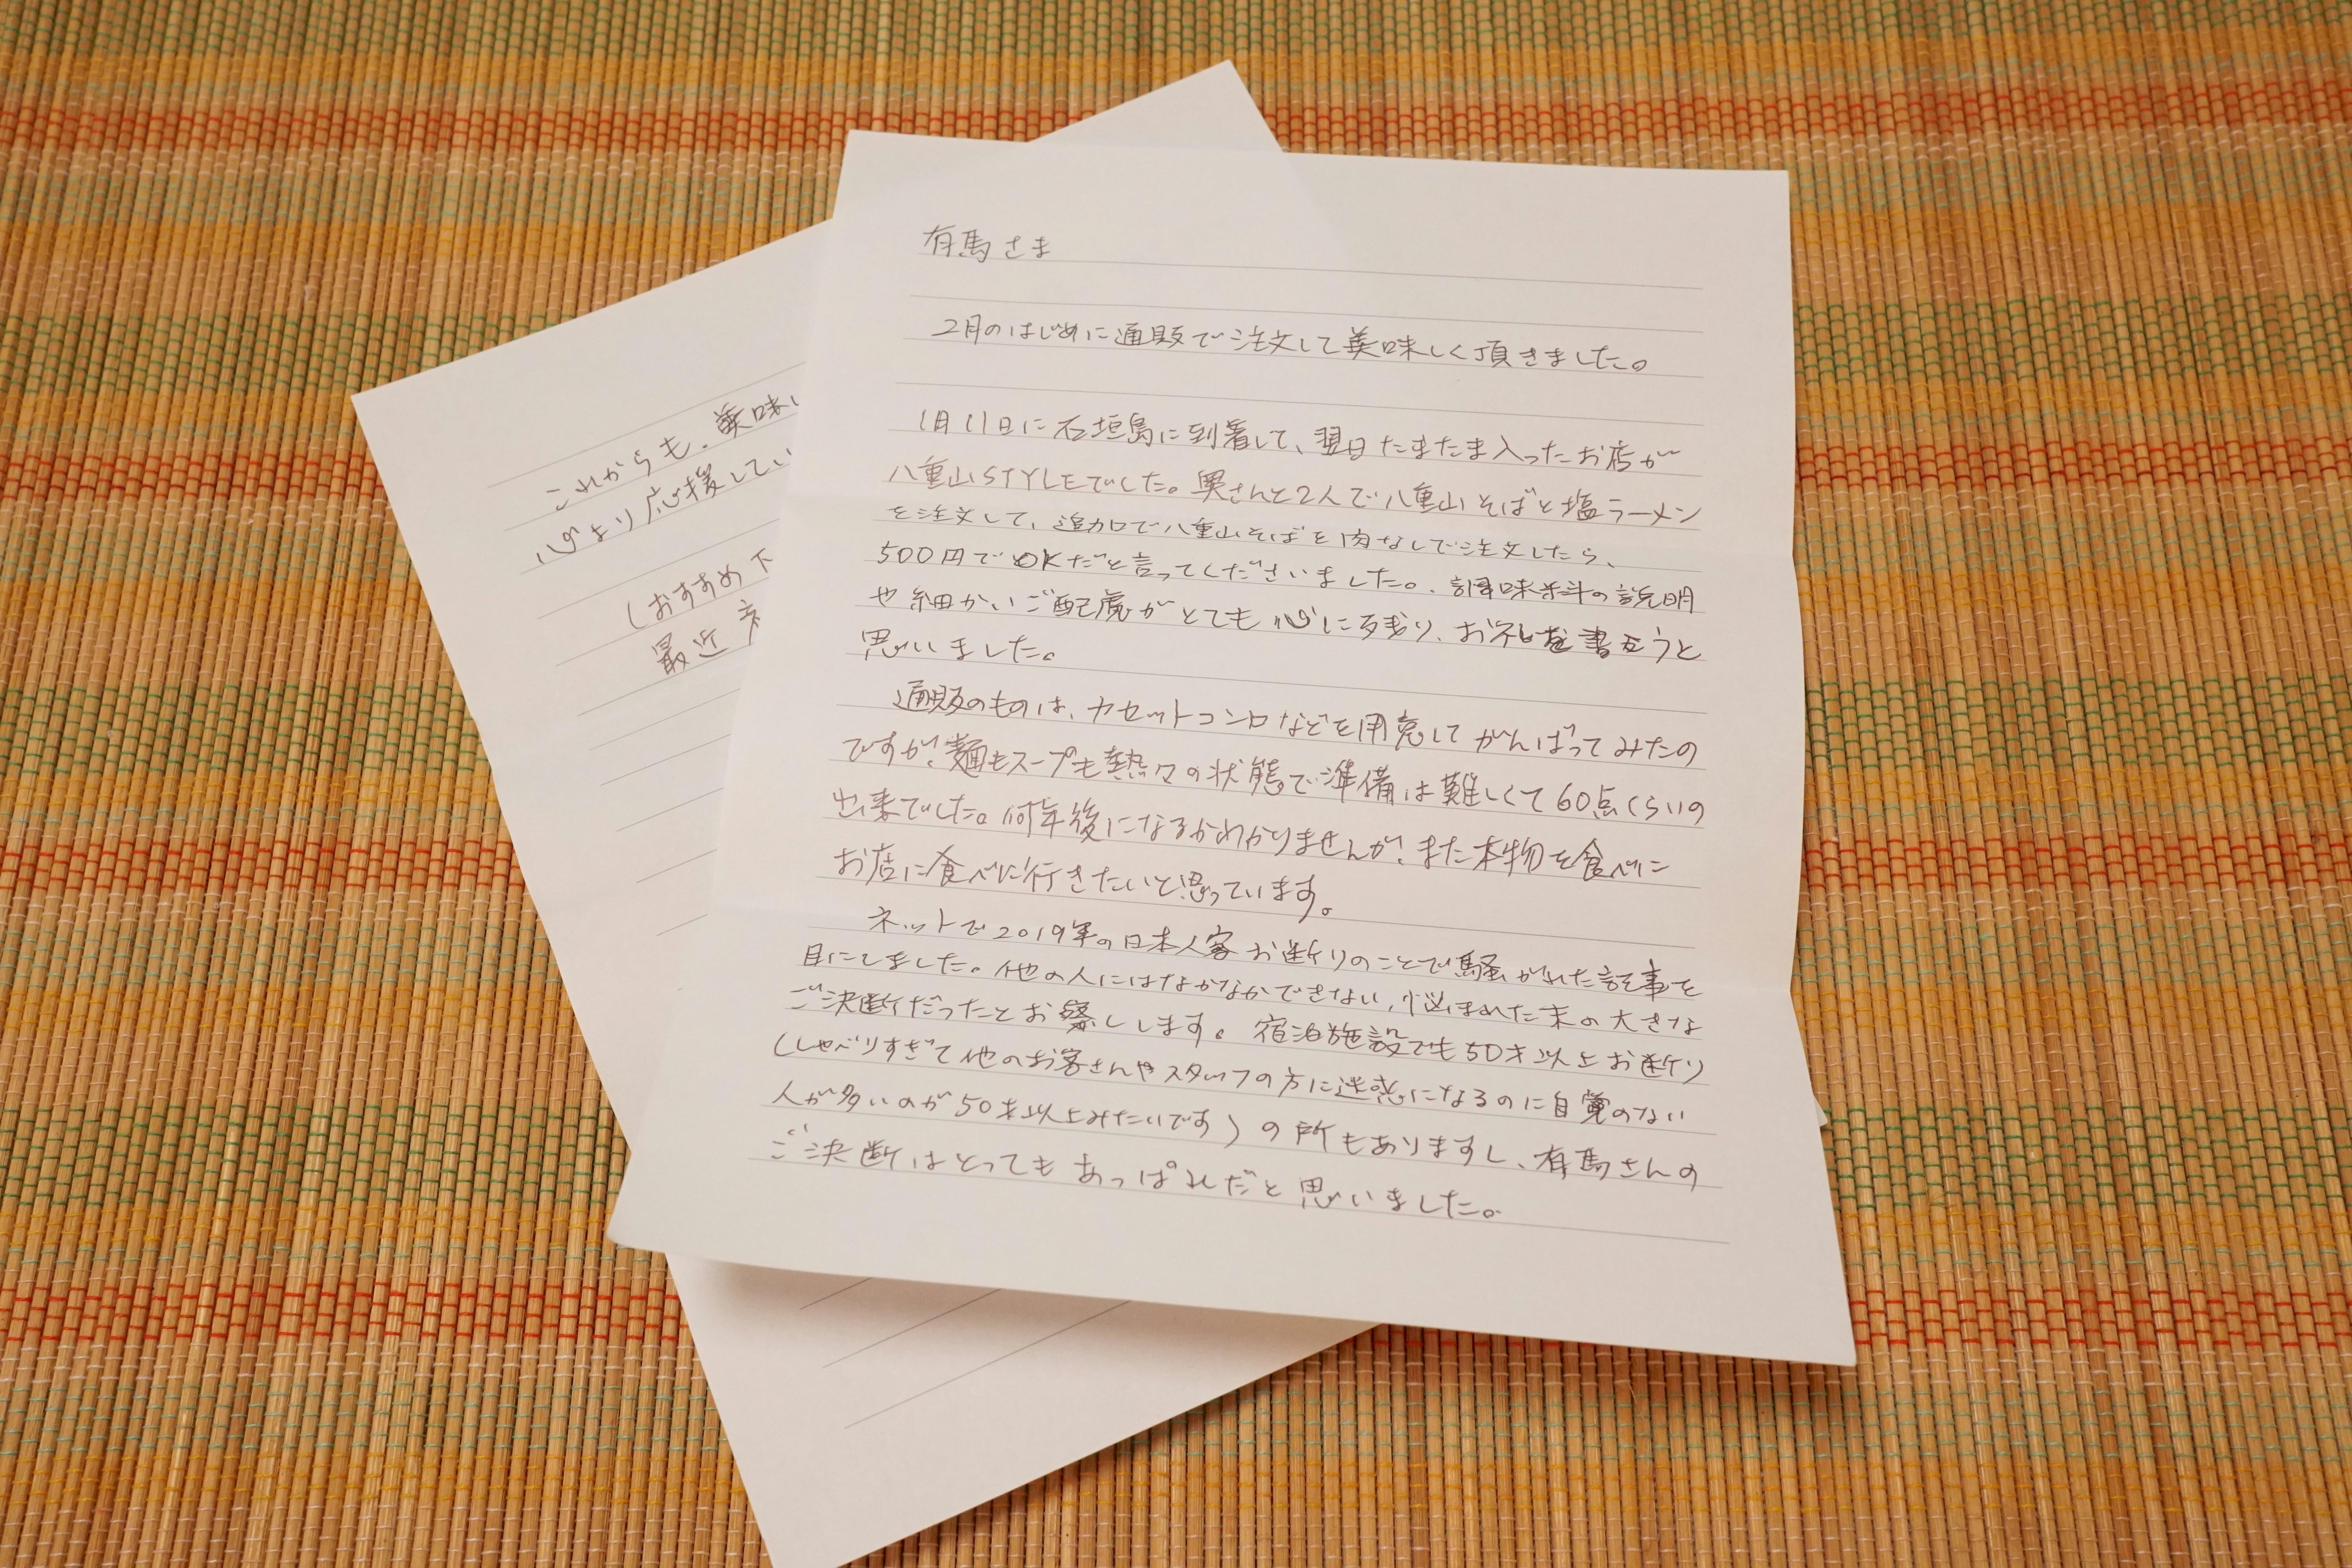 有馬さま
2月のはじめに通販で注文して美味しく頂きました。
1月11日に石垣島に到着して、翌日たまたま入ったお店が
八重山STYLEでした。奥さんと2人で八重山そばと塩ラーメン
を注文して、追加で八重山そばを肉なしで注文したら、
500円でOKだと言ってくださいました。調味料の説明
や細かいご配慮がとても心に残り、お礼を書こうと
思いました。
通販のものは、カセットコンロなどを用意してがんばってみたの
ですが、麺もスープも熱々の状態で準備は難しくて60点くらいの
出来でした。何年後になるかわかりませんが、また本物を食べに
お店に食べに行きたいと思っています。
ネットで2019年の日本人客お断りのことで騒がれた記事を
目にしました。他の人にはなかなかできない、悩まれた末の大きな
ご決断だったとお察しします。宿泊施設でも50才以上お断り
(しゃべりすぎて他のお客さんやスタッフの方に迷惑になるのに自覚のない
人が多いのが50才以上みたいです)の所もありますし、有馬さんの
ご決断はとってもあっぱれだと思いました。
これからも、美味し
心より応援してい
(おすすめ
最近